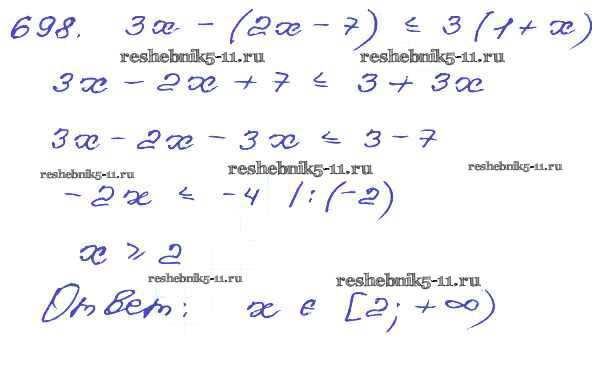 698. 3x - (2x - 7) ≤ 3(1 + x)
reshebnik5-11.ru reshebnik5-11.ru
3x - 2x + 7 ≤ 3 + 3x
3x - 2x - 3x ≤ 3 - 7
reshebnik5-11.ru reshebnik5-11.ru reshebnik5-11.ru
-2x ≤ -4 |:(-2)
x ≥ 2
reshebnik5-11.ru reshebnik5-11.ru
Ответ: x ∈ [2; +∞)